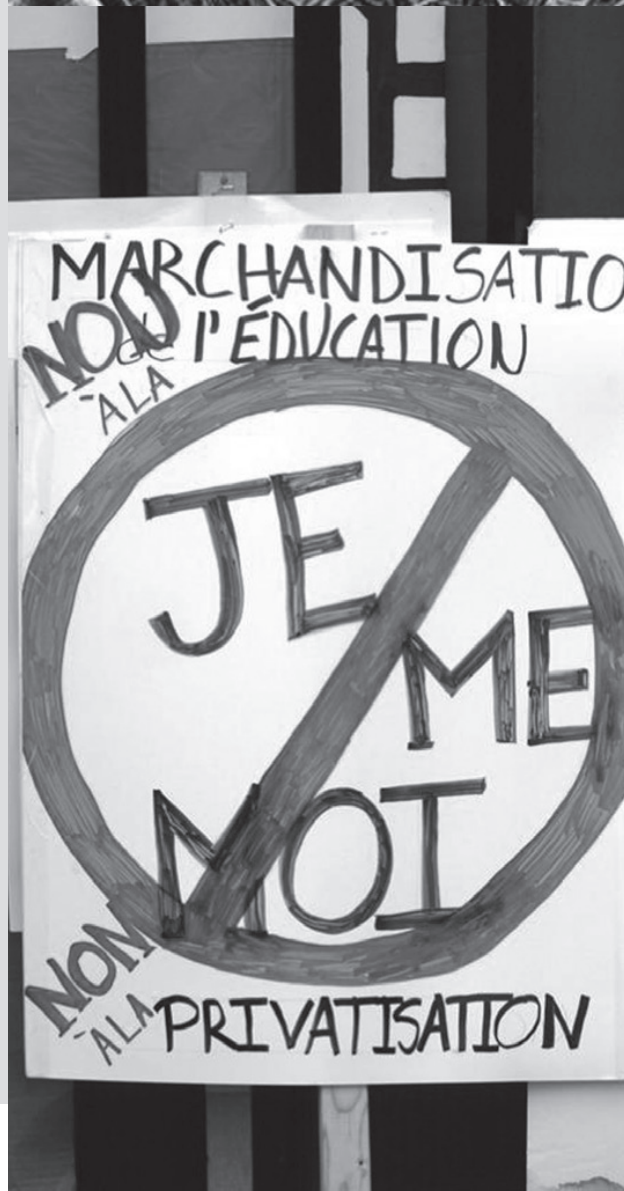 NON
À LA
MARCHANDISATIO
de l'ÉDUCATION
JE
ME
MOI
NON
À LA
PRIVATISATION